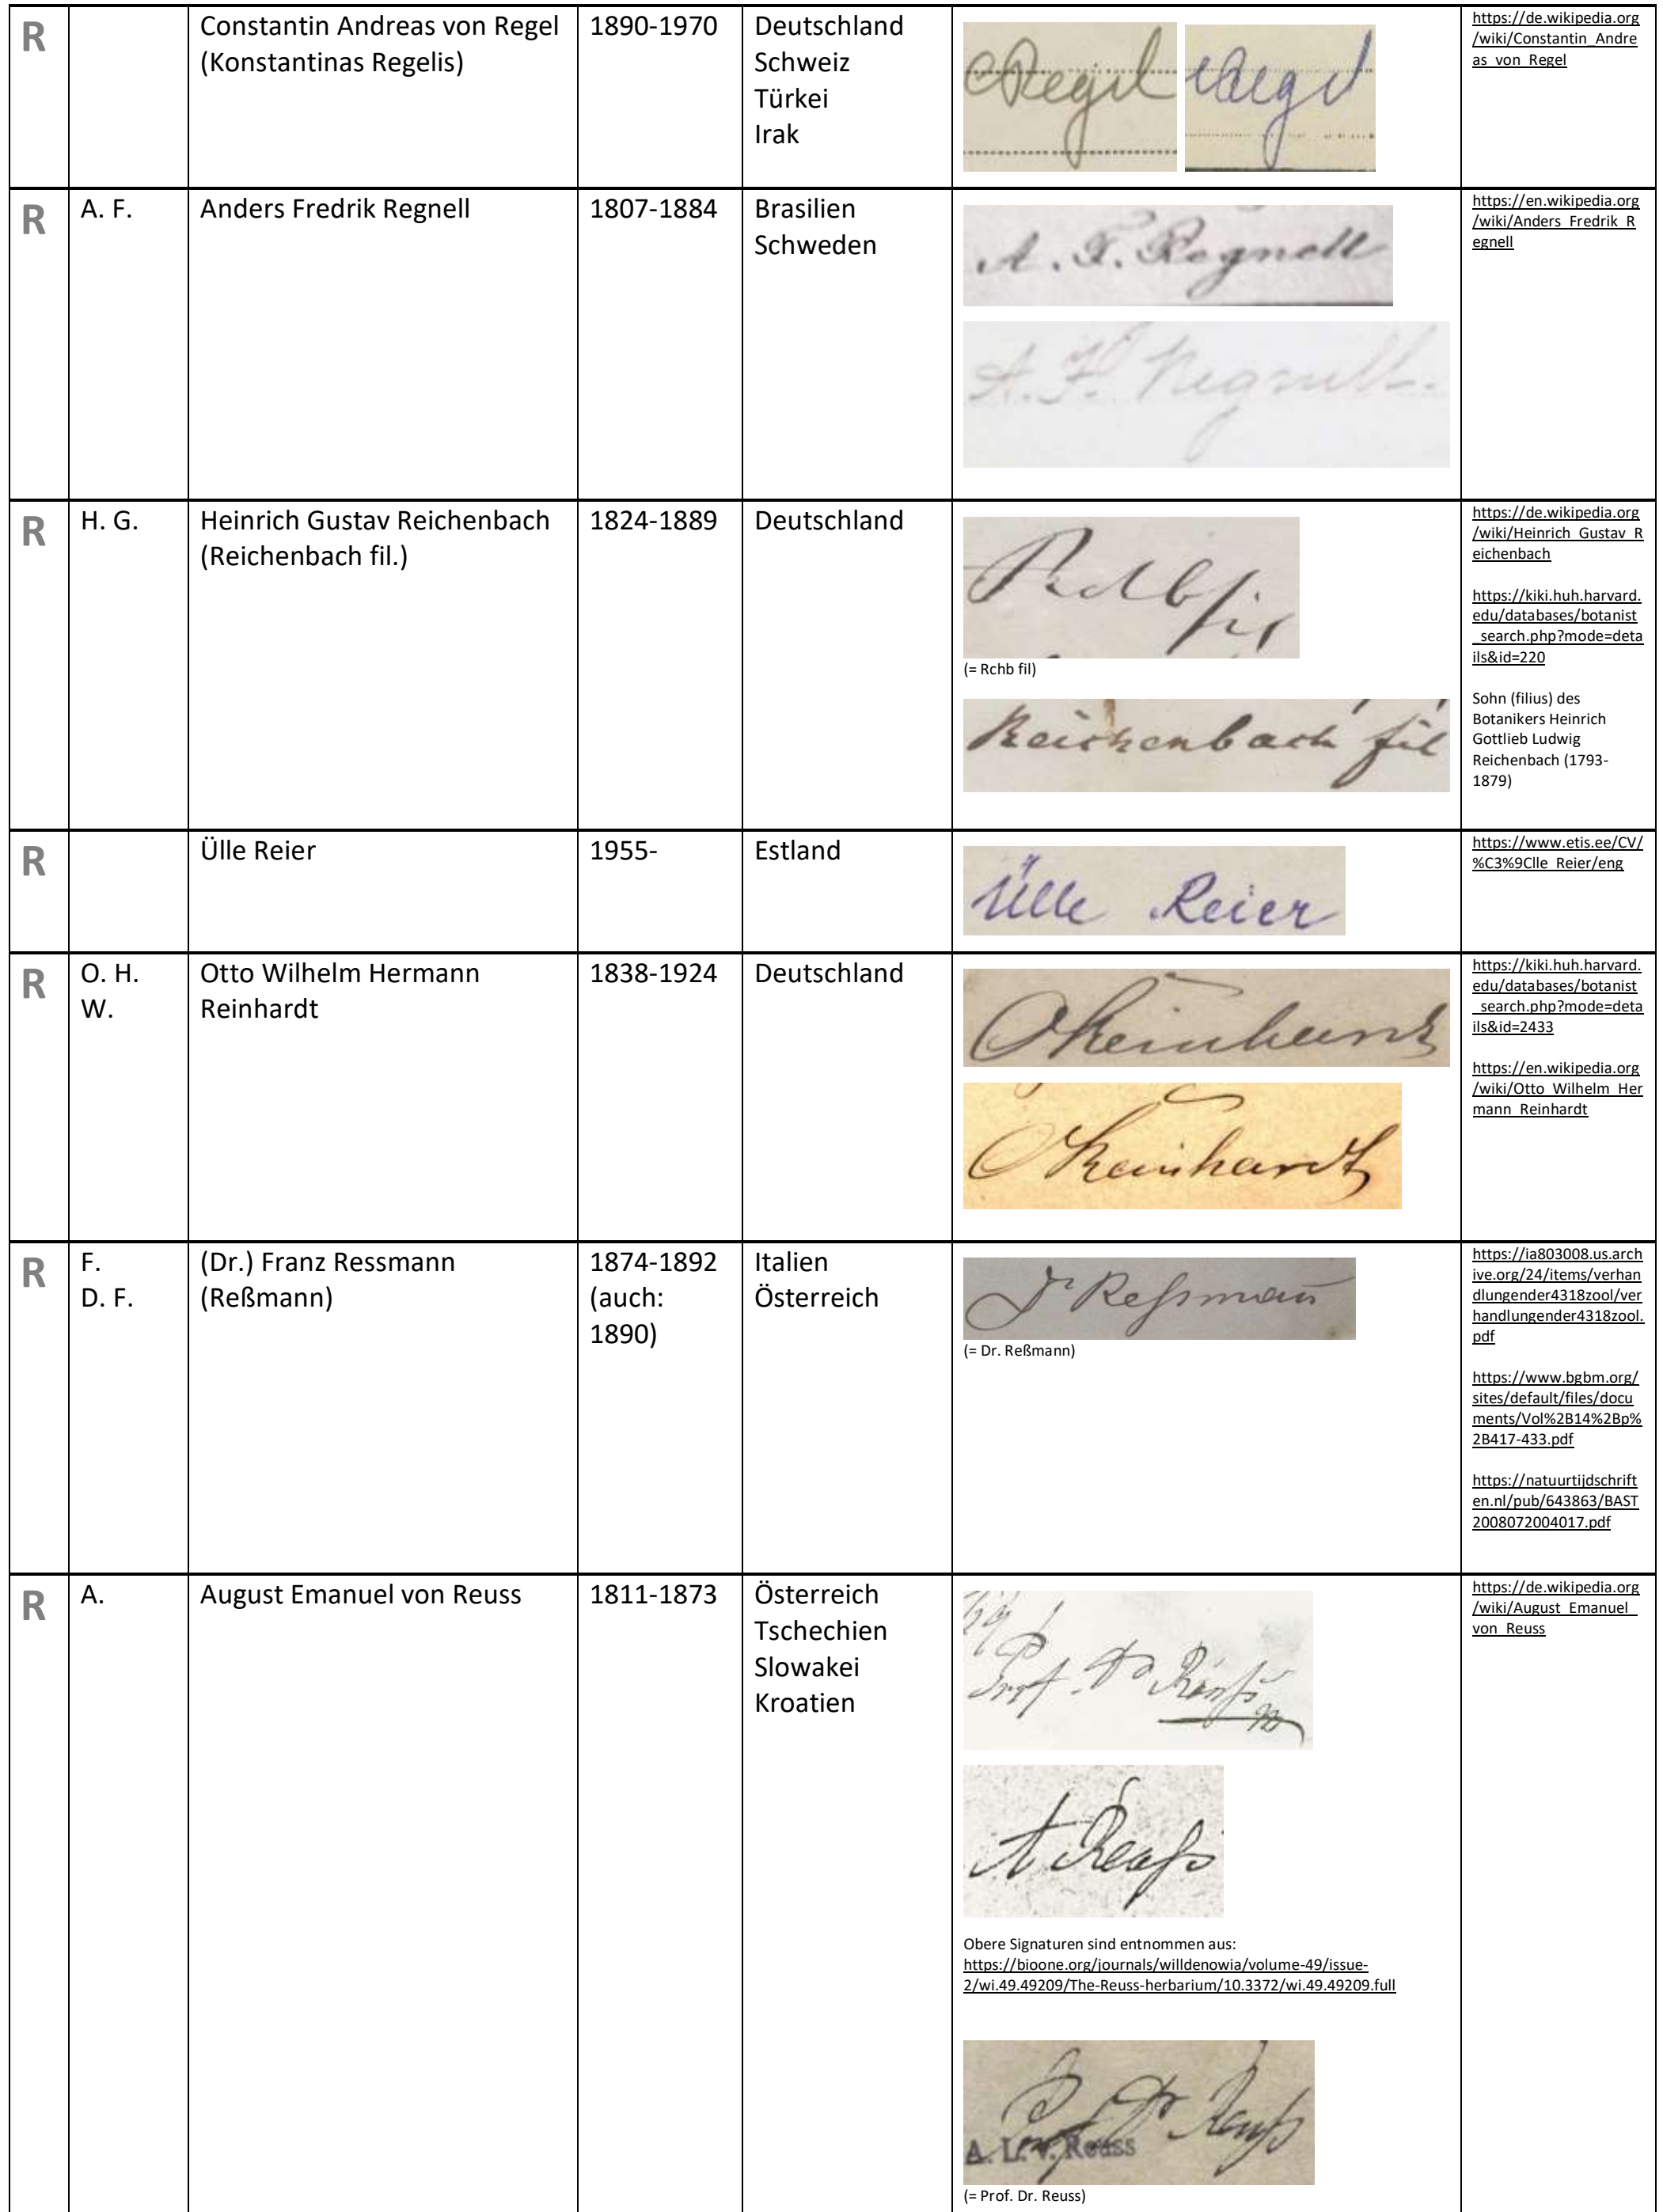 R
Constantin Andreas von Regel
(Konstantinas Regelis)
1890-1970
Deutschland
Schweiz
Türkei
Irak
CRegel
CRegel
https://de.wikipedia.org
/wiki/Constantin_Andre
as_von_Regel
R
A. F.
Anders Fredrik Regnell
1807-1884
Brasilien
Schweden
A. F. Regnell
A. F. Regnell.
https://en.wikipedia.org
/wiki/Anders_Fredrik_R
egnell
R
H. G.
Heinrich Gustav Reichenbach
(Reichenbach fil.)
1824-1889
Deutschland
Rchb fil
(= Rchb fil)
Reichenbach fil
https://de.wikipedia.org
/wiki/Heinrich_Gustav_R
eichenbach
https://kiki.huh.harvard.
edu/databases/botanist
_search.php?mode=deta
ils&id=220
Sohn (filius) des
Botanikers Heinrich
Gottlieb Ludwig
Reichenbach (1793-
1879)
R
Ülle Reier
1955-
Estland
Ülle Reier
https://www.etis.ee/CV/
%C3%9Clle_Reier/eng
R
O. H.
W.
Otto Wilhelm Hermann
Reinhardt
1838-1924
Deutschland
OReinhardt
OReinhardt
https://kiki.huh.harvard.
edu/databases/botanist
_search.php?mode=deta
ils&id=2433
https://en.wikipedia.org
/wiki/Otto_Wilhelm_Her
mann_Reinhardt
R
F.
D. F.
(Dr.) Franz Ressmann
(Reßmann)
1874-1892
(auch:
1890)
Italien
Österreich
Dr Reßmann
(= Dr. Reßmann)
https://ia803008.us.arch
ive.org/24/items/verhan
dlungender4318zool/ver
handlungender4318zool.
pdf
https://www.bgbm.org/
sites/default/files/docu
ments/Vol%2B14%2Bp%
2B417-433.pdf
https://natuurtijdschrift
en.nl/pub/643863/BAST
2008072004017.pdf
R
A.
August Emanuel von Reuss
1811-1873
Österreich
Tschechien
Slowakei
Kroatien
Prof. Dr Reuß
A Reuß
Obere Signaturen sind entnommen aus:
https://bioone.org/journals/willdenowia/volume-49/issue-
2/wi.49.49209/The-Reuss-herbarium/10.3372/wi.49.49209.full
Prof Dr Reuß
A. L. v. Reuss
(= Prof. Dr. Reuss)
https://de.wikipedia.org
/wiki/August_Emanuel_
von_Reuss